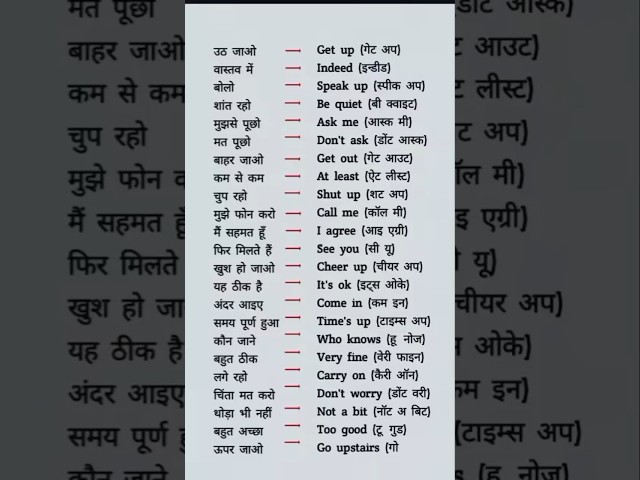 उठ जाओ → Get up (गेट अप)
वास्तव में → Indeed (इन्डीड)
बोलो → Speak up (स्पीक अप)
शांत रहो → Be quiet (बी क्वाइट)
मुझसे पूछो → Ask me (आस्क मी)
मत पूछो → Don't ask (डोंट आस्क)
बाहर जाओ → Get out (गेट आउट)
कम से कम → At least (ऐट लीस्ट)
चुप रहो → Shut up (शट अप)
मुझे फोन करो → Call me (कॉल मी)
मैं सहमत हूँ → I agree (आइ एग्री)
फिर मिलते हैं → See you (सी यू)
खुश हो जाओ → Cheer up (चीयर अप)
यह ठीक है → It's ok (इट्स ओके)
अंदर आइए → Come in (कम इन)
समय पूर्ण हुआ → Time's up (टाइम्स अप)
कौन जाने → Who knows (हू नोज)
बहुत ठीक → Very fine (वेरी फाइन)
लगे रहो → Carry on (कैरी ऑन)
चिंता मत करो → Don't worry (डोंट वरी)
थोड़ा भी नहीं → Not a bit (नॉट अ बिट)
बहुत अच्छा → Too good (टू गुड)
ऊपर जाओ → Go upstairs (गो